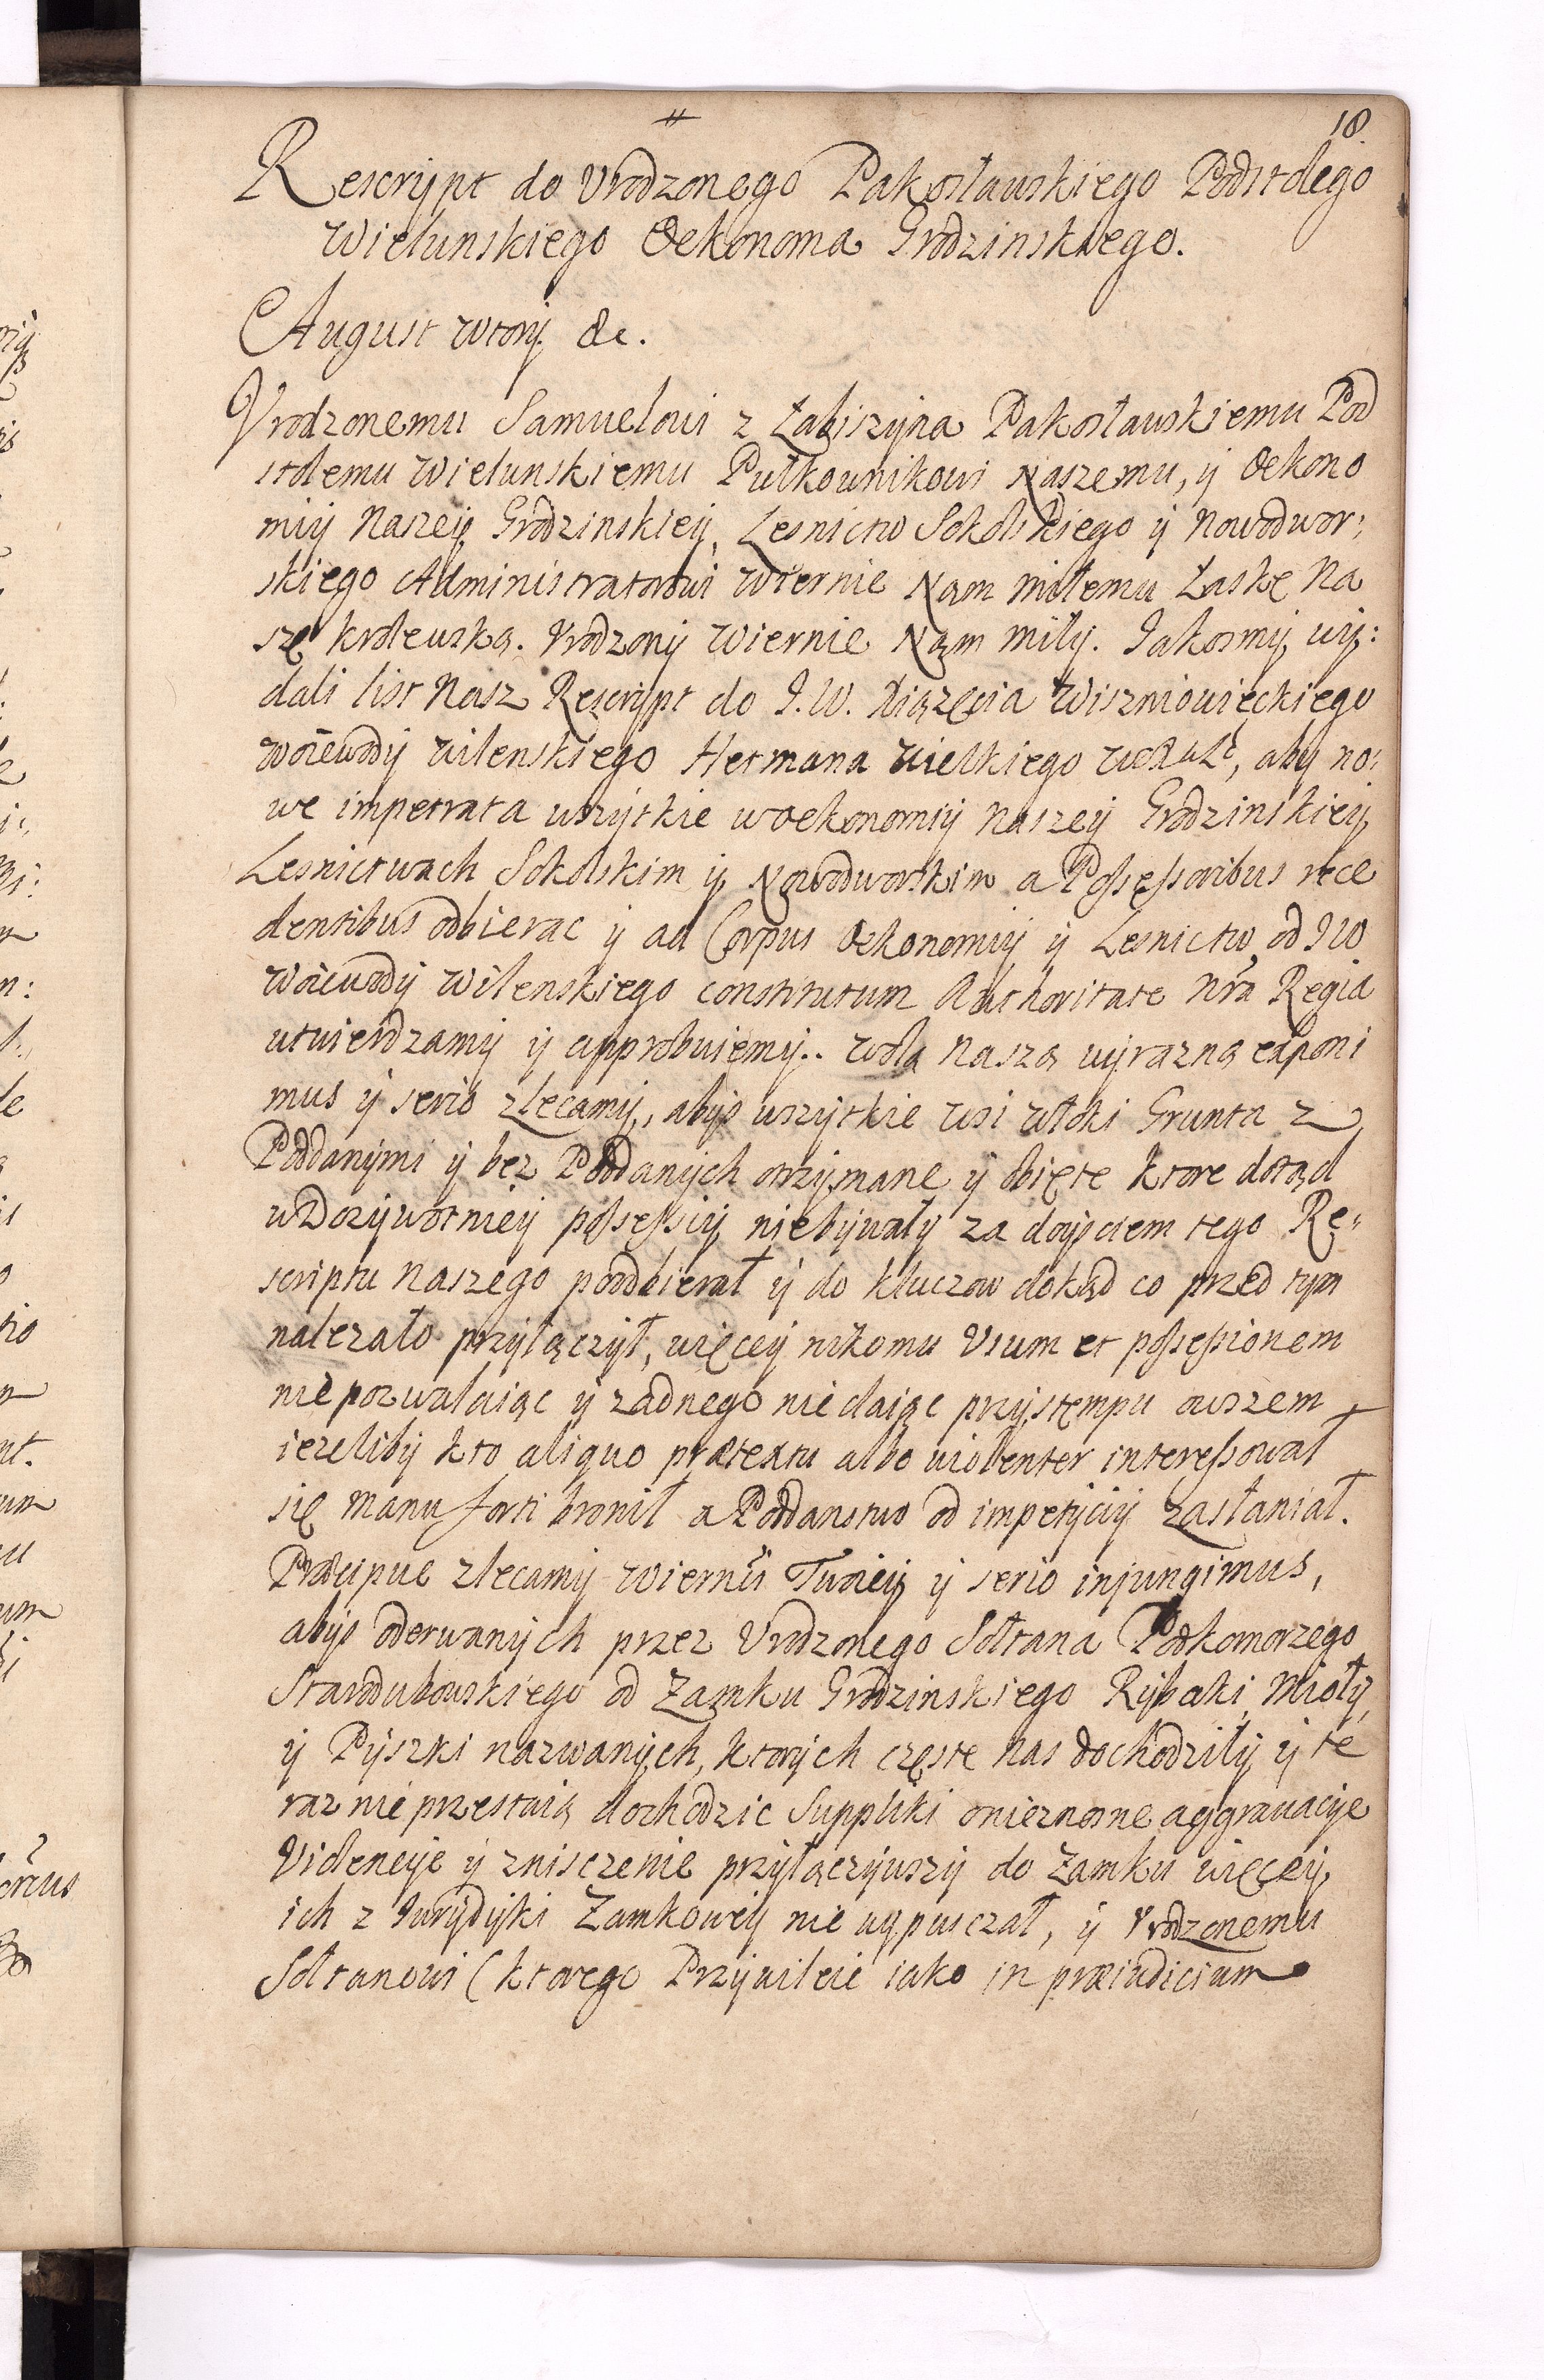 18.
Rescrypt do Vrodzonego Pakosławskiego Podstolego
Wielunskiego Oekonoma Grodzinskiego.
August Wtory &c.
Vrodzonemu Samuelowi z Łabiszyna Pakosławskiemu Pod
stolemu Wielunskiemu Pułkownikowi Naszemu, y Oekono
miy Naszey Grodzinskiey, Lesnictw Sokolskiego y Nowodwor:
skiego Administratorowi Wiernie Nam miłemu Łaskę Na
szę krolewską. Vrodzony Wiernie Nam miły. Jakosmy wy:
dali list Nasz Rescrypt do J.W. Xiązęcia Wiszniowieckiego
Woiewody Wilenskiego Hetmana Wielkiego WXLitt, aby no:
we impetrata wszytkie w Oekonomiy Naszey Grodzinskiey
Lesnictwach Sokolskim y Nowodworskim a Possessoribus rece
dentibus odbierac y ad Corpus Oekonomiy y Lesnictw, od JW
Woiewody Wilenskiego constitutum Authoritate Nr̃a Regia
utwierdzamy y approbuiemy.. Wola Naszą wyrazną exponi
mus y serio zlecamy, abyś wszytkie wsi włoki Grunta z
Poddanymi y bez Poddanych otrzymane y obięte ktore dotąd
w Dozywotniey possessiy niebywały za doyściem tego Re=
scriptu Naszego poodbierał y do kluczow dokąd co przed tym
nalezało przyłączył, więcey nikomu Vsum et possessionem
nie pozwalaiąc y zadnego nie daiąc przystempu owszem
iezeliby kto aliquo prætextu albo violenter interessował
się manu forti bronił a Poddanstwo od impetyciy zasłaniał.
Præcipue zlecamy Wierñsi Twoiey y serio injungimus,
abyś oderwanych przez Vrodzonego Sołtana Podkomorzego
Starodubowskiego od Zamku Grodzinskiego Rybaki, Mioły,
y Pyszki nazwanych, ktorych częste nas dochodziły y te
raz nie przestaią dochodzic Suppliki o nieznosne aggrawacye
Violencye y znisczenie przyłączywszy do Zamku więcey
ich z Jurydyki Zamkowey nie wypusczał, y Vrodzonemu
Sołtanowi (ktorego Przywileie iako in præiudicium